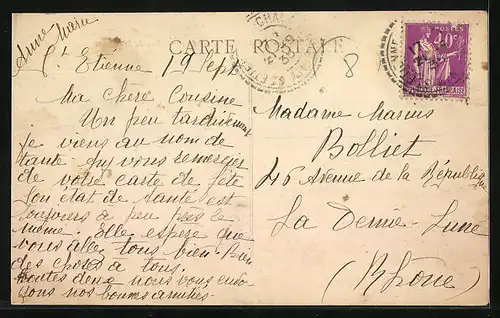 Anne Marie
CARTE POSTALE
8
POSTES
40c
St Etienne 19 Sept
Ma chère Cousine
Un peu tardivement
je viens au nom de
tante vous remercier
de votre carte de fête
son état de santé est
toujours à peu près le
même. Elle espère que
vous allez tous bien. Bien
des choses à tous.
Toutes deux nous vous envo
yons nos bonnes amitiés.
Madame Marius
Bolliet
46 Avenue de la République
La Demie-Lune
(Rhône)